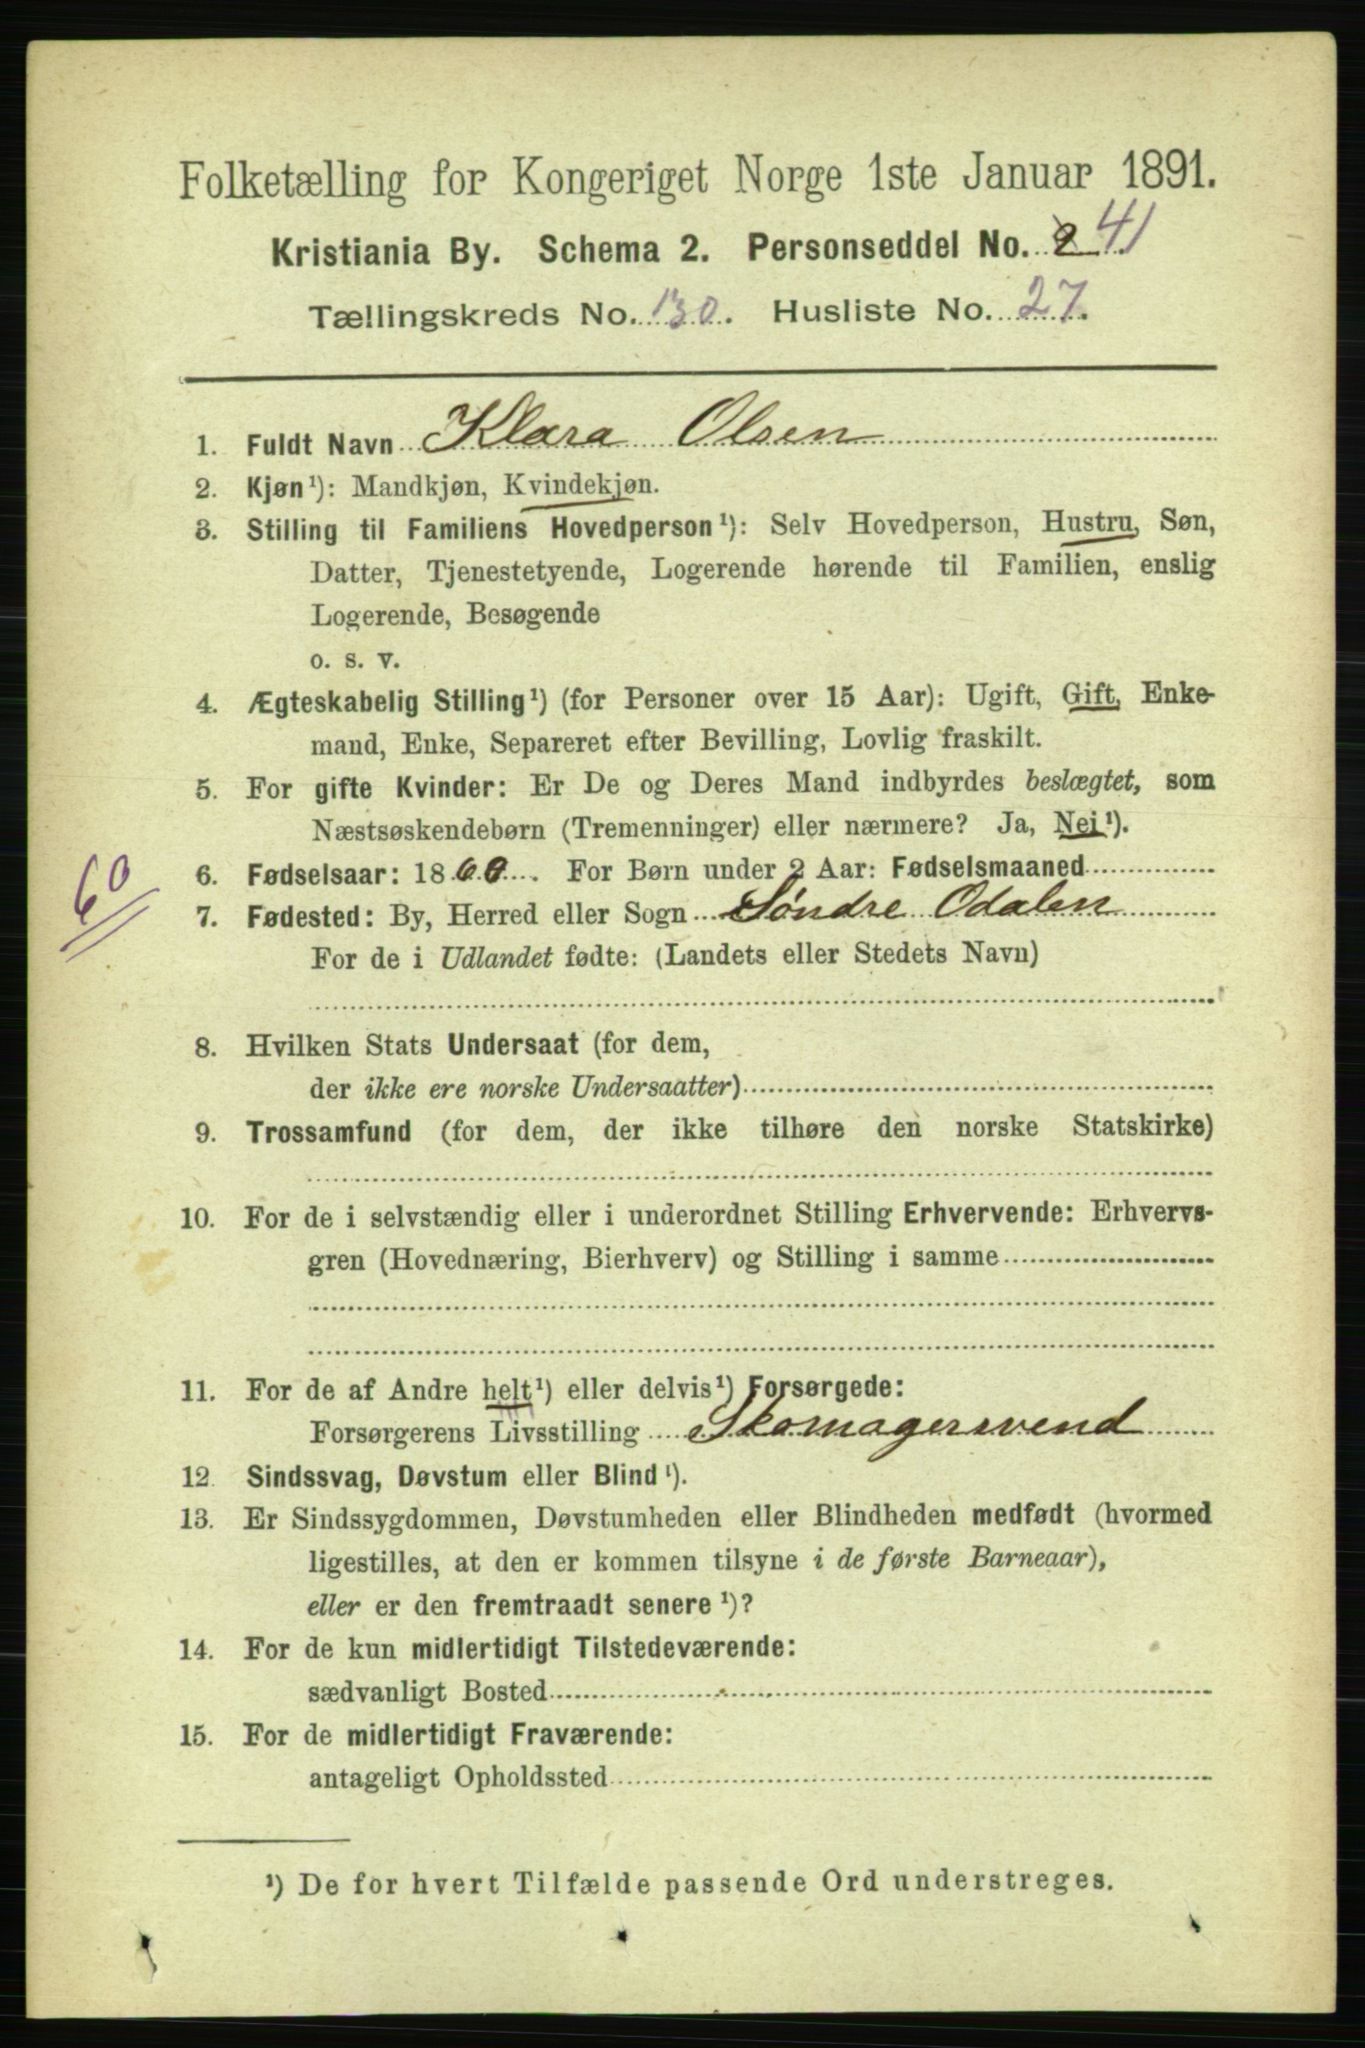 Folketælling for Kongeriget Norge 1ste Januar 1891.
Kristiania By. Schema 2. Personseddel No. 2 41
Tællingskreds No. 130. Husliste No. 27.
1. Fuldt Navn Klara Olsen
2. Kjøn¹): Mandkjøn, Kvindekjøn.
3. Stilling til Familiens Hovedperson¹): Selv Hovedperson, Hustru, Søn,
Datter, Tjenestetyende, Logerende hørende til Familien, enslig
Logerende, Besøgende
o. s. v.
4. Ægteskabelig Stilling¹) (for Personer over 15 Aar): Ugift, Gift, Enke-
mand, Enke, Separeret efter Bevilling, Lovlig fraskilt.
5. For gifte Kvinder: Er De og Deres Mand indbyrdes beslægtet, som
Næstsøskendebørn (Tremenninger) eller nærmere? Ja, Nei¹).
60
6. Fødselsaar: 1860. For Børn under 2 Aar: Fødselsmaaned
7. Fødested: By, Herred eller Sogn Søndre Odalen
For de i Udlandet fødte: (Landets eller Stedets Navn)
8. Hvilken Stats Undersaat (for dem,
der ikke ere norske Undersaatter)
9. Trossamfund (for dem, der ikke tilhøre den norske Statskirke)
10. For de i selvstændig eller i underordnet Stilling Erhvervende: Erhvervs-
gren (Hovednæring, Bierhverv) og Stilling i samme
11. For de af Andre helt¹) eller delvis¹) Forsørgede:
Forsørgerens Livsstilling Skomagersvend
12. Sindssvag, Døvstum eller Blind¹).
13. Er Sindssygdommen, Døvstumheden eller Blindheden medfødt (hvormed
ligestilles, at den er kommen tilsyne i de første Barneaar),
eller er den fremtraadt senere¹)?
14. For de kun midlertidigt Tilstedeværende:
sædvanligt Bosted
15. For de midlertidigt Fraværende:
antageligt Opholdssted
¹) De for hvert Tilfælde passende Ord understreges.